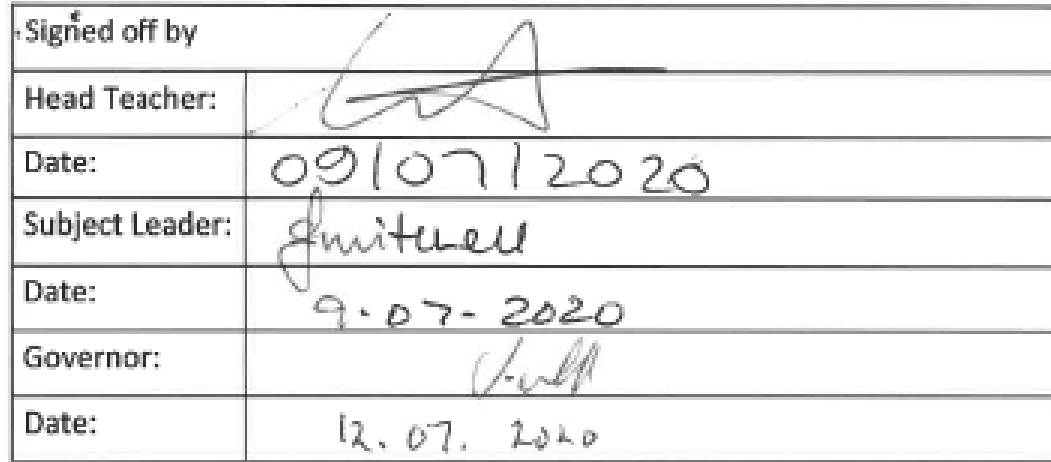 Signed off by
Head Teacher:
Date: 09/07/2020
Subject Leader: Jmitchell
Date: 9.07.2020
Governor:
Date: 12.07.2020